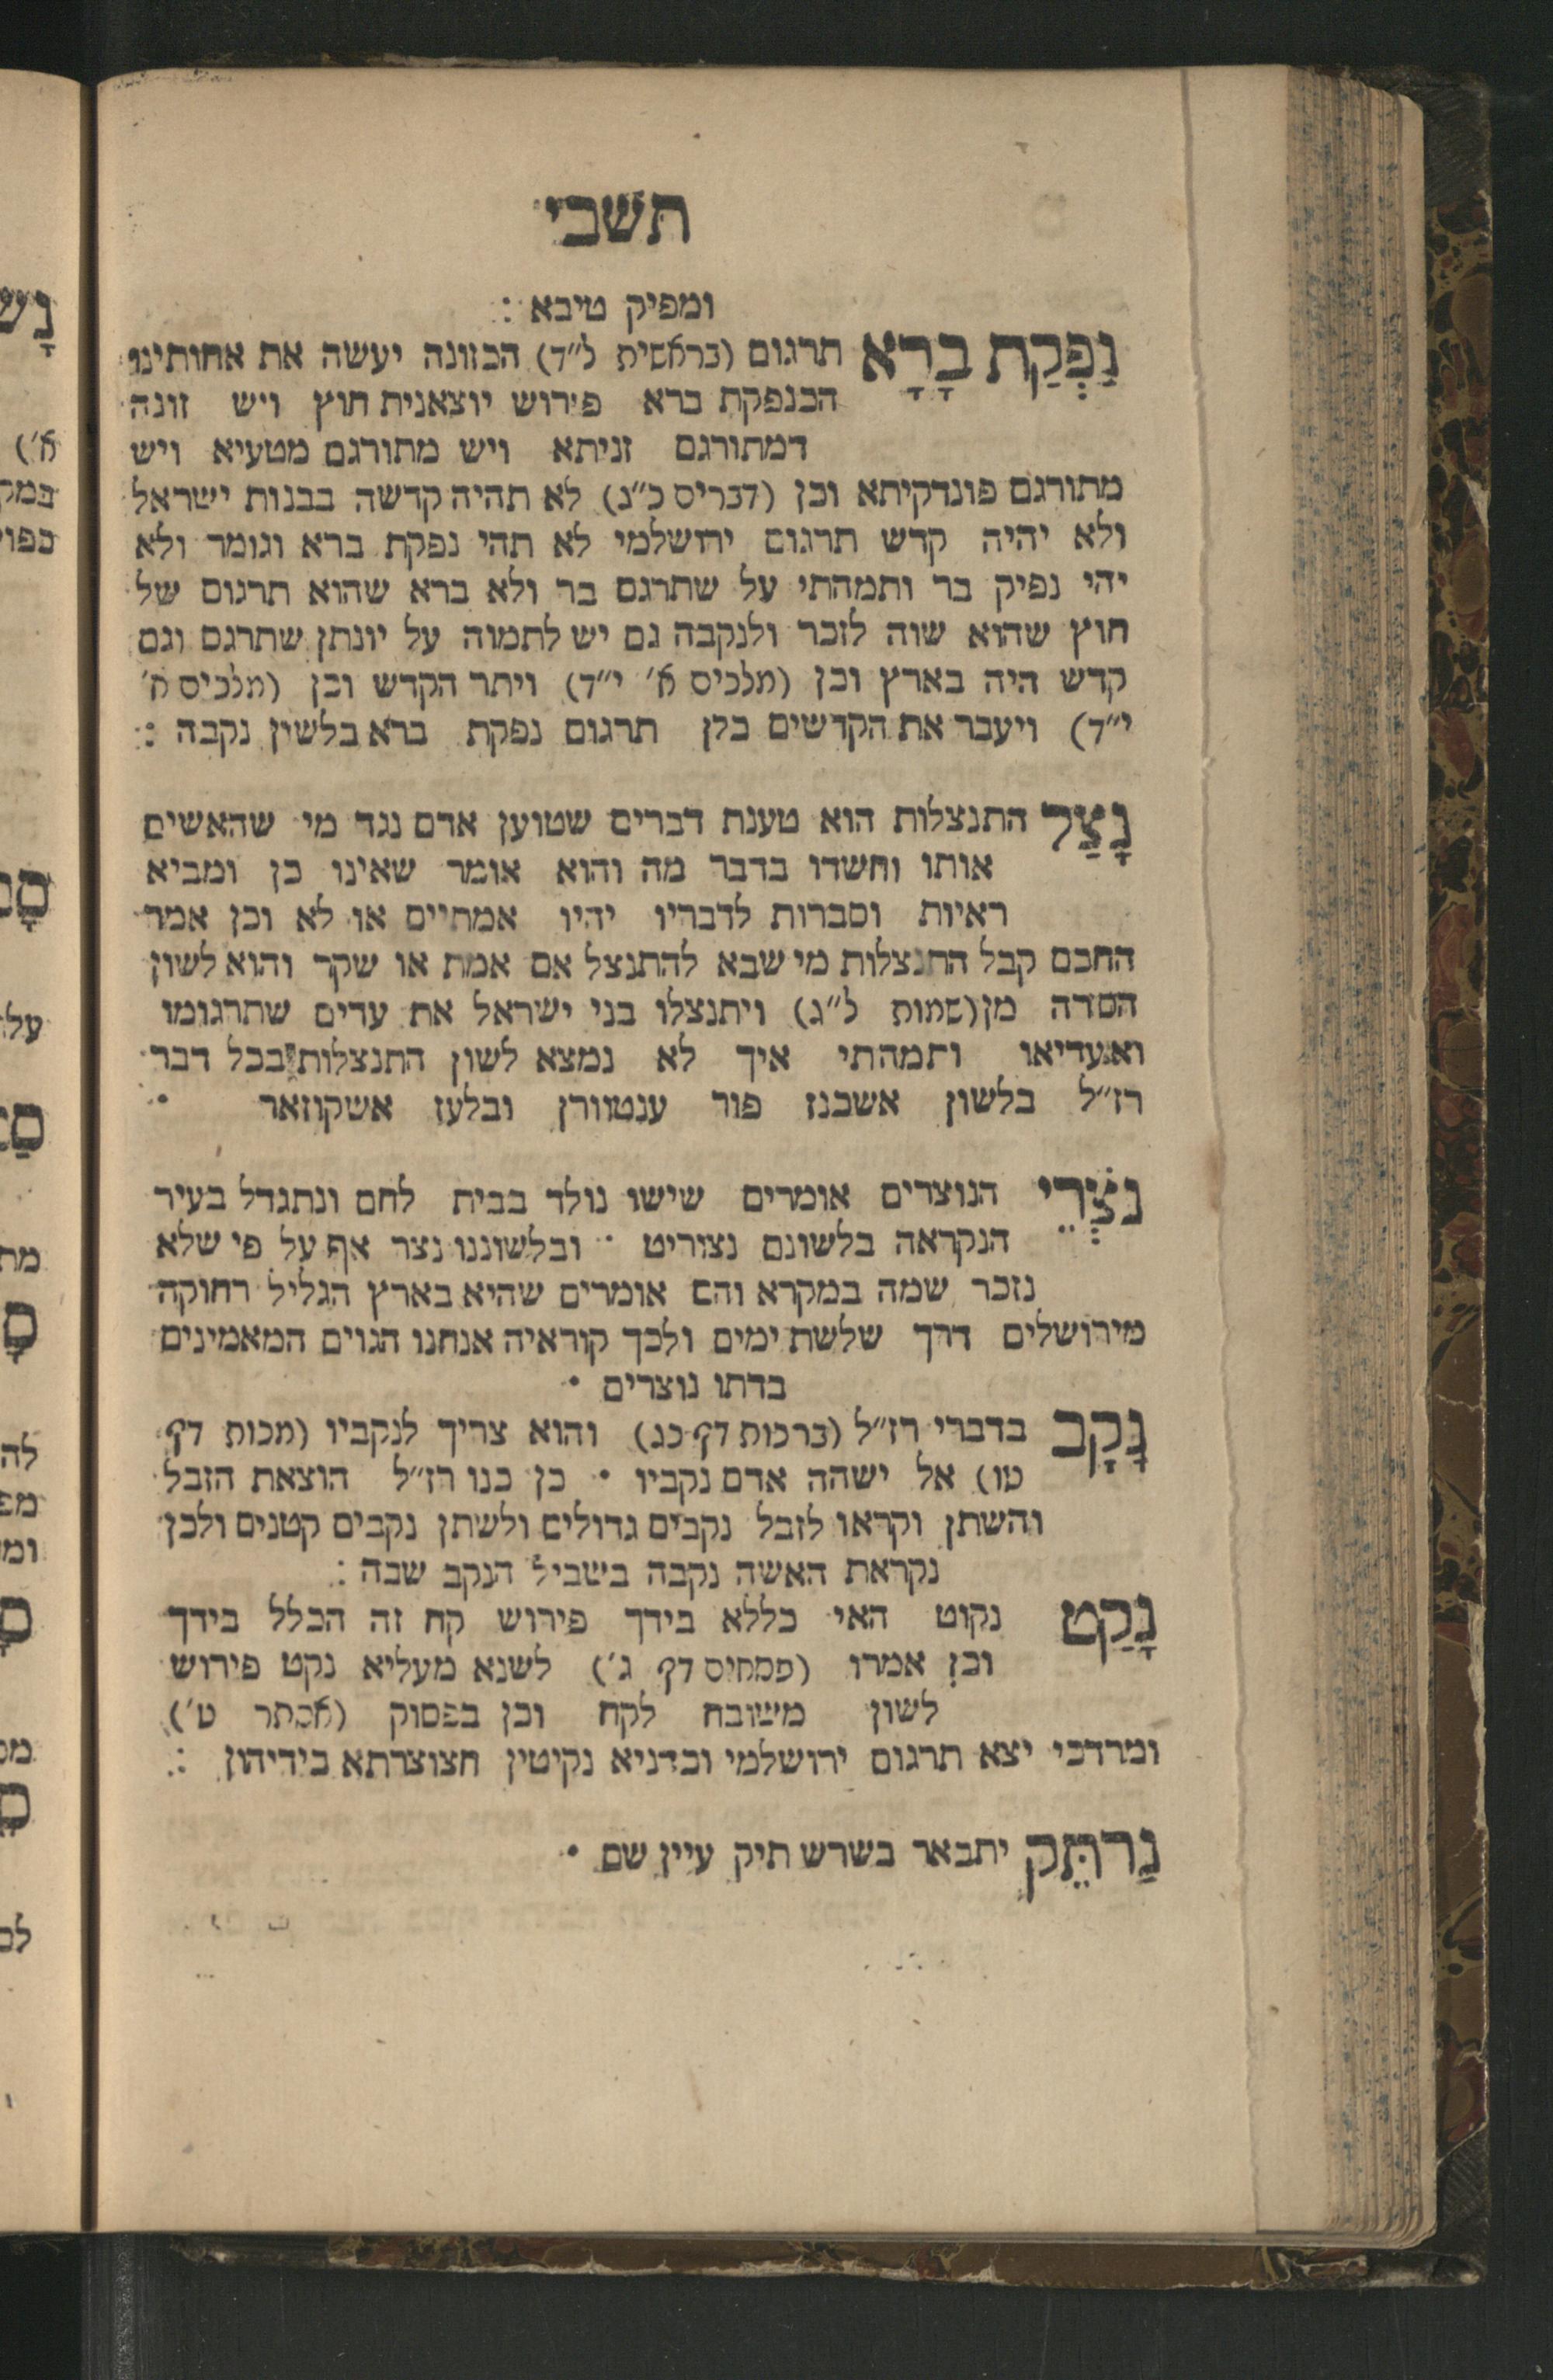 תשבי
ומפיק טיבא :
נַפְקַת בָּרָא תרגום (בראשית ל״ד) הכזונה יעשה את אחותינו
הכנפקת ברא פירוש יוצאנית חוץ ויש זונה
דמתורגם זניתא ויש מתורגם מטעיא ויש
מתורגם פונדקיתא וכן (דברים כ״ג) לא תהיה קדשה בבנות ישראל
ולא יהיה קדש תרגום ירושלמי לא תהי נפקת ברא וגומר ולא
יהי נפיק בר ותמהתי על שתרגם בר ולא ברא שהוא תרגום של
חוץ שהוא שוה לזכר ולנקבה גם יש לתמוה על יונתן שתרגם וגם
קדש היה בארץ וכן (מלכים א׳ י״ד) ויתר הקדש וכן (מלכים א׳
י״ד) ויעבר את הקדשים כלן תרגום נפקת ברא בלשון נקבה :
נָצַל התנצלות הוא טענת דברים שטוען אדם נגד מי שהאשים
אותו וחשדו בדבר מה והוא אומר שאינו כן ומביא
ראיות וסברות לדבריו יהיו אמתיים או לא וכן אמר
החכם קבל התנצלות מי שבא להתנצל אם אמת או שקר והוא לשון
הסרה מן (שמות ל״ג) ויתנצלו בני ישראל את עדים שתרגומו
ואעדיאו ותמהתי איך לא נמצא לשון התנצלות בכל דבר
רז״ל בלשון אשכנז פור ענטוורן ובלעז אשקוזאר ·
נֹצְרֵי הנוצרים אומרים שישו נולד בבית לחם ונתגדל בעיר
הנקראה בלשונם נצוריט · ובלשוננו נצר אף על פי שלא
נזכר שמה במקרא והם אומרים שהיא בארץ הגליל רחוקה
מירושלים דרך שלשת ימים ולכך קוראיה אנחנו הגוים המאמינים
בדתו נוצרים ·
נָקָב בדברי רז״ל (ברכות דף כג) והוא צריך לנקביו (מכות דף
טו) אל ישהה אדם נקביו · כן כנו רז״ל הוצאת הזבל
והשתן וקראו לזבל נקבים גדולים ולשתן נקבים קטנים ולכן
נקראת האשה נקבה בשביל הנקב שבה :
נָקַט נקוט האי כללא בידך פירוש קח זה הכלל בידך
וכן אמרו (פסחים דף ג׳) לשנא מעליא נקט פירוש
לשון משובח לקח וכן בפסוק (אסתר ט׳)
ומרדכי יצא תרגום ירושלמי וכדניא נקיטין חצוצרתא בידיהון :
נַרתֵּק יתבאר בשרש תיק עיין שם ·